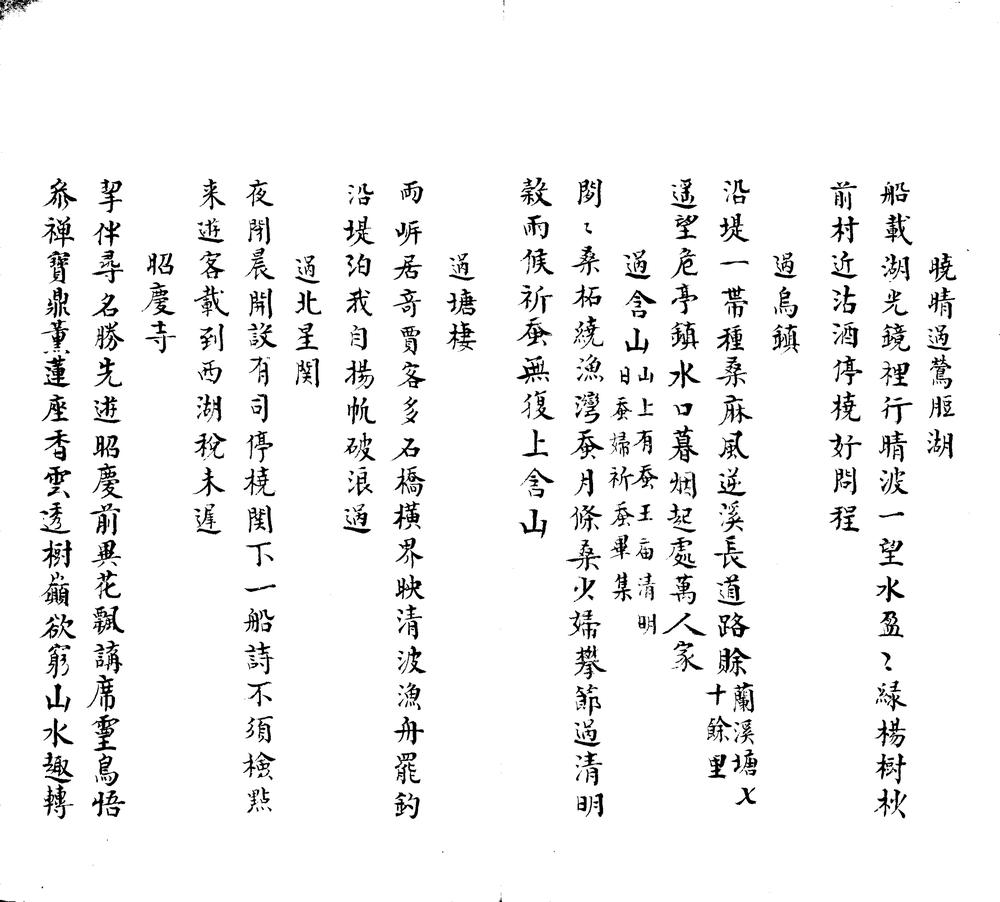 曉晴過鶯脰湖
船載湖光鏡裡行晴波一望水盈〻緑楊樹杪
前村近沽酒停橈好問程
過烏鎮
沿堤一帶種桑麻風逆溪長道路賒蘭溪塘又
十餘里
遥望危亭鎮水口暮烟起處萬人家
過含山山上有蚕王庙清明
日蚕婦祈蚕畢集
閔〻桑柘繞漁灣蚕月條桑少婦攀節過清明
榖雨候祈蚕無復上含山
過塘棲
兩岍居奇賈客多石橋橫界映清波漁舟罷釣
沿堤泊我自揚帆破浪過
過北星関
夜閉晨開設有司停橈関下一船詩不須檢點
来遊客載到西湖稅未遲
昭慶寺
挈伴尋名勝先遊昭慶前異花飄講席靈鳥悟
参禅寶鼎薰蓮座香雲透樹巔欲窮山水趣轉